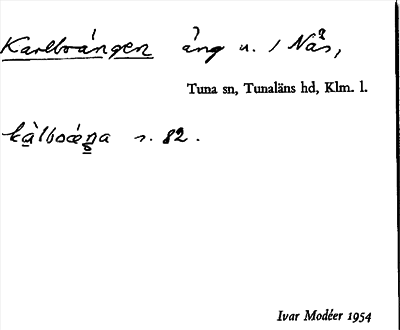 Karlboängen äng u. / Näs,
Tuna sn, Tunaläns hd, Klm. l.
s. 82.
Ivar Modéer 1954